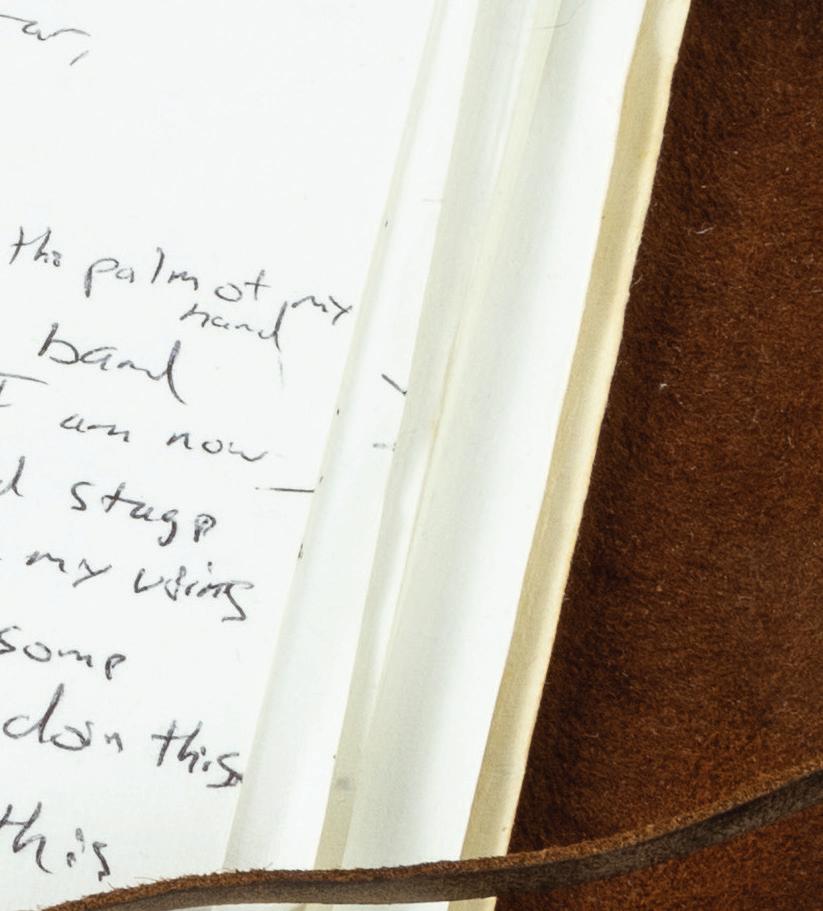 the palm of my
hand
band
I am now
stage
my using
some
doin this
this